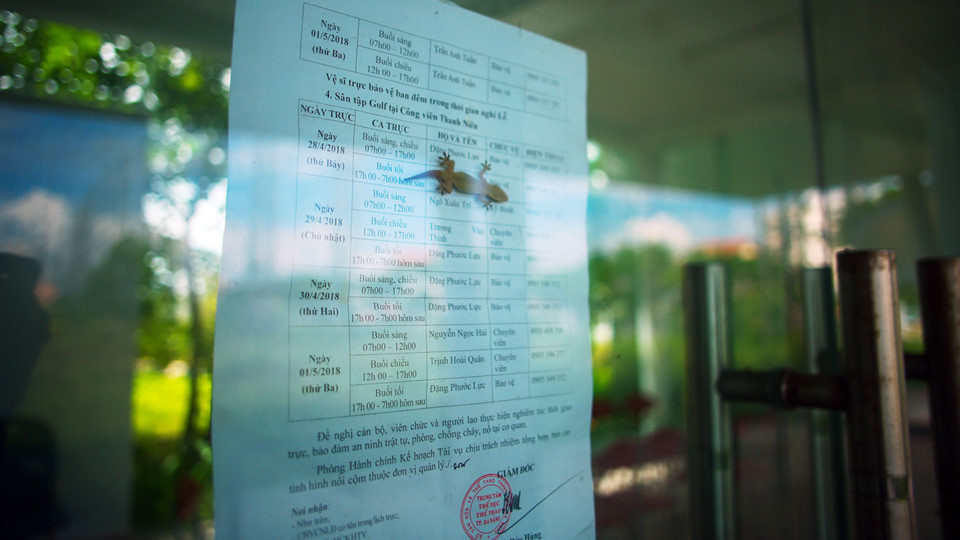 Ngày Buổi sáng Trần Anh Tuấn Bảo vệ
01/5/2018 07h00 – 12h00
(thứ Ba) Buổi chiều Trần Anh Tuấn Bảo vệ
12h 00 – 17h00
Vệ sĩ trực bảo vệ ban đêm trong thời gian nghỉ Lễ.
4. Sân tập Golf tại Công viên Thanh Niên
NGÀY TRỰC CA TRỰC HỌ VÀ TÊN CHỨC VỤ ĐIỆN THOẠI
Ngày Buổi sáng, chiều Đặng Phước Lực Bảo vệ
28/4/2018 07h00 – 17h00
(thứ Bảy) Buổi tối
17h 00 - 7h00 hôm sau
Ngày Buổi sáng Ngô Xuân Trí
29/4/2018 07h00 – 12h00
(Chủ nhật) Buổi chiều Trương Văn Chuyên
12h 00 – 17h00 Thịnh viên
Buổi tối Đặng Phước Lực Bảo vệ
17h 00 - 7h00 hôm sau
Ngày Buổi sáng, chiều Đặng Phước Lực Bảo vệ
30/4/2018 07h00 – 17h00
(thứ Hai) Buổi tối Đặng Phước Lực Bảo vệ
17h 00 - 7h00 hôm sau
Ngày Buổi sáng Nguyễn Ngọc Hải Chuyên
01/5/2018 07h00 – 12h00 viên
(thứ Ba) Buổi chiều Trịnh Hoài Quân Chuyên
12h 00 – 17h00 viên
Buổi tối Đặng Phước Lực Bảo vệ
17h 00 - 7h00 hôm sau
Đề nghị cán bộ, viên chức và người lao thực hiện nghiêm túc thời gian
trực, bảo đảm an ninh trật tự, phòng, chống cháy, nổ tại cơ quan.
Phòng Hành chính Kế hoạch Tài vụ chịu trách nhiệm tổng hợp, báo cáo
tình hình nổi cộm thuộc đơn vị quản lý./.
GIÁM ĐỐC
TRUNG TÂM
THỂ DỤC
THỂ THAO
TP. ĐÀ NẴNG
Nơi nhận:
- Như trên;
- CBVCNLĐ có tên trong lịch trực;
Hùng